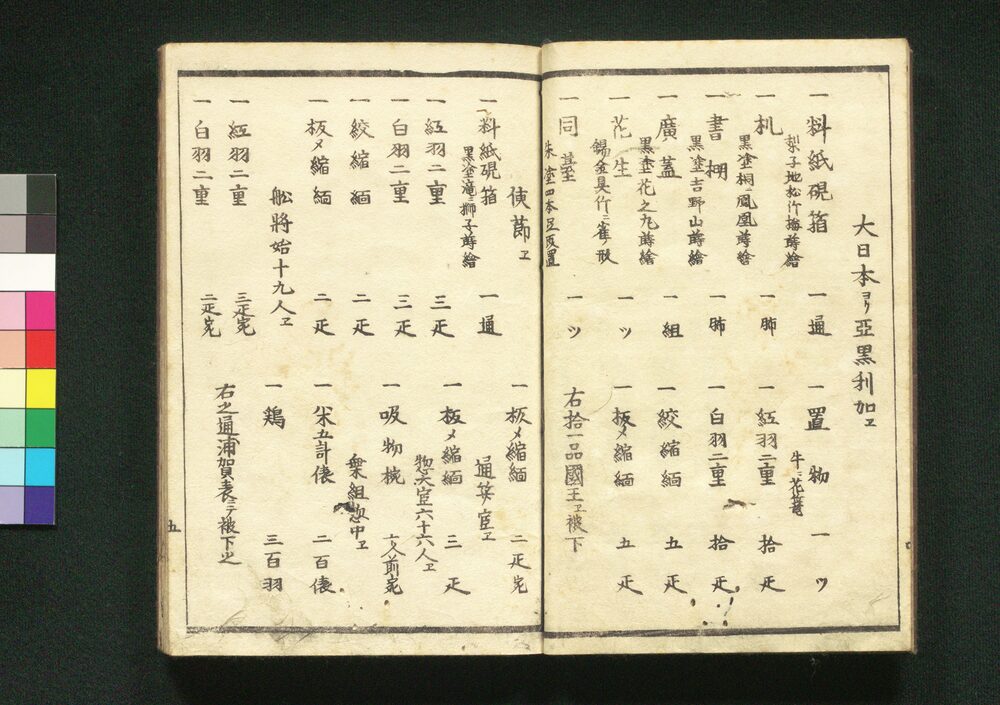 大日本ヨリ亞黒利加エ
一料紙硯箱 一通
梨子地松竹梅蒔繪
一机 一脚
黒塗桐ニ鳳凰蒔繪
一書棚 一脚
黒塗吉野山蒔繪
一廣蓋 一組
黒塗花之丸蒔繪
一花生 一ツ
錫金具竹ニ雀ノ形
一同臺 一ツ
朱塗四本足
一置物 一ツ
牛ニ花籠
一紅羽二重 拾疋
一白羽二重 拾疋
一絞縮緬 五疋
一板〆縮緬 五疋
右拾一品國王エ被下
使節エ
一料紙硯箱 一通
黒塗滝ニ獅子蒔繪
一紅羽二重 三疋
一白羽二重 三疋
一絞縮緬 二疋
一板〆縮緬 二疋
舩將始十九人エ
一紅羽二重 三疋宛
一白羽二重 二疋宛
一板〆縮緬 二疋宛
通弁官エ
一板〆縮緬 三疋
惣大官六十六人エ
一吸物椀 十人前宛
衆組惣中エ
一米五計俵 二百俵
一鶏 三百羽
右之通浦賀表ニテ被下之
五